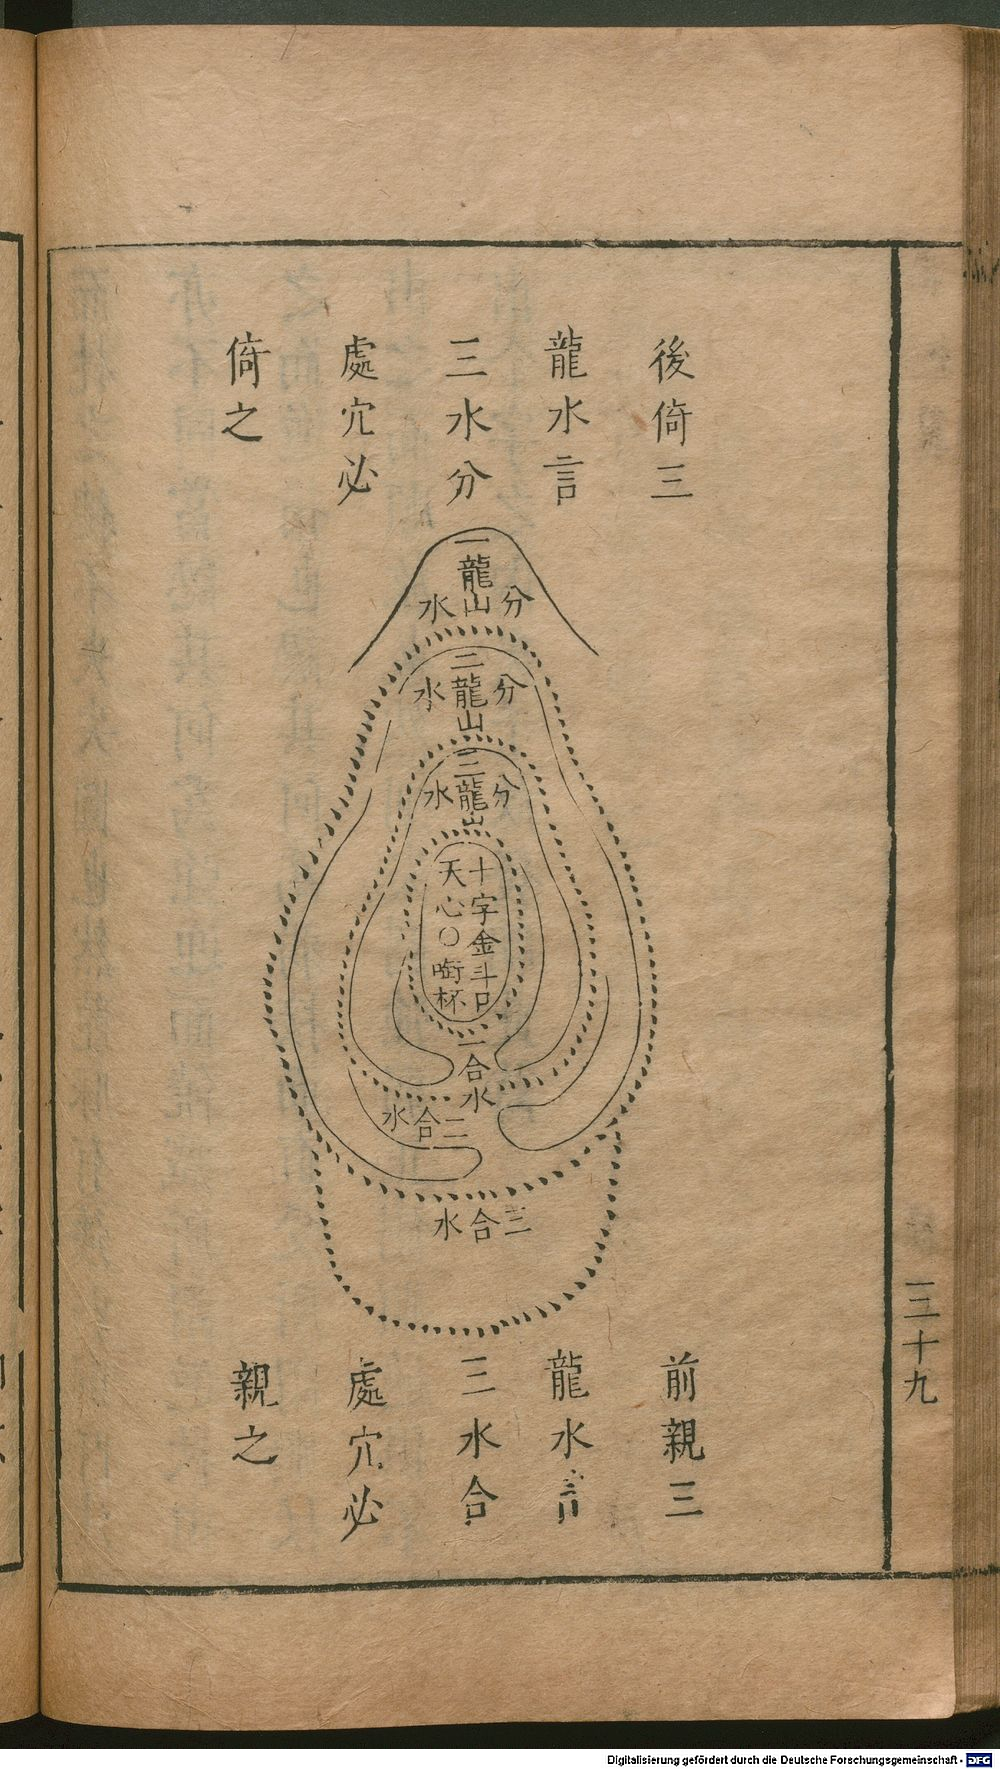 後倚三
龍水言
三水分
處穴必
倚之
一龍山
分水
二龍山
分水
三龍山
分水
十字金斗口
天心〇啣杯
一合水
二合水
三合水
前親三
龍水言
三水合
處穴必
親之
三十九
Digitalisierung gefördert durch die Deutsche Forschungsgemeinschaft - DFG